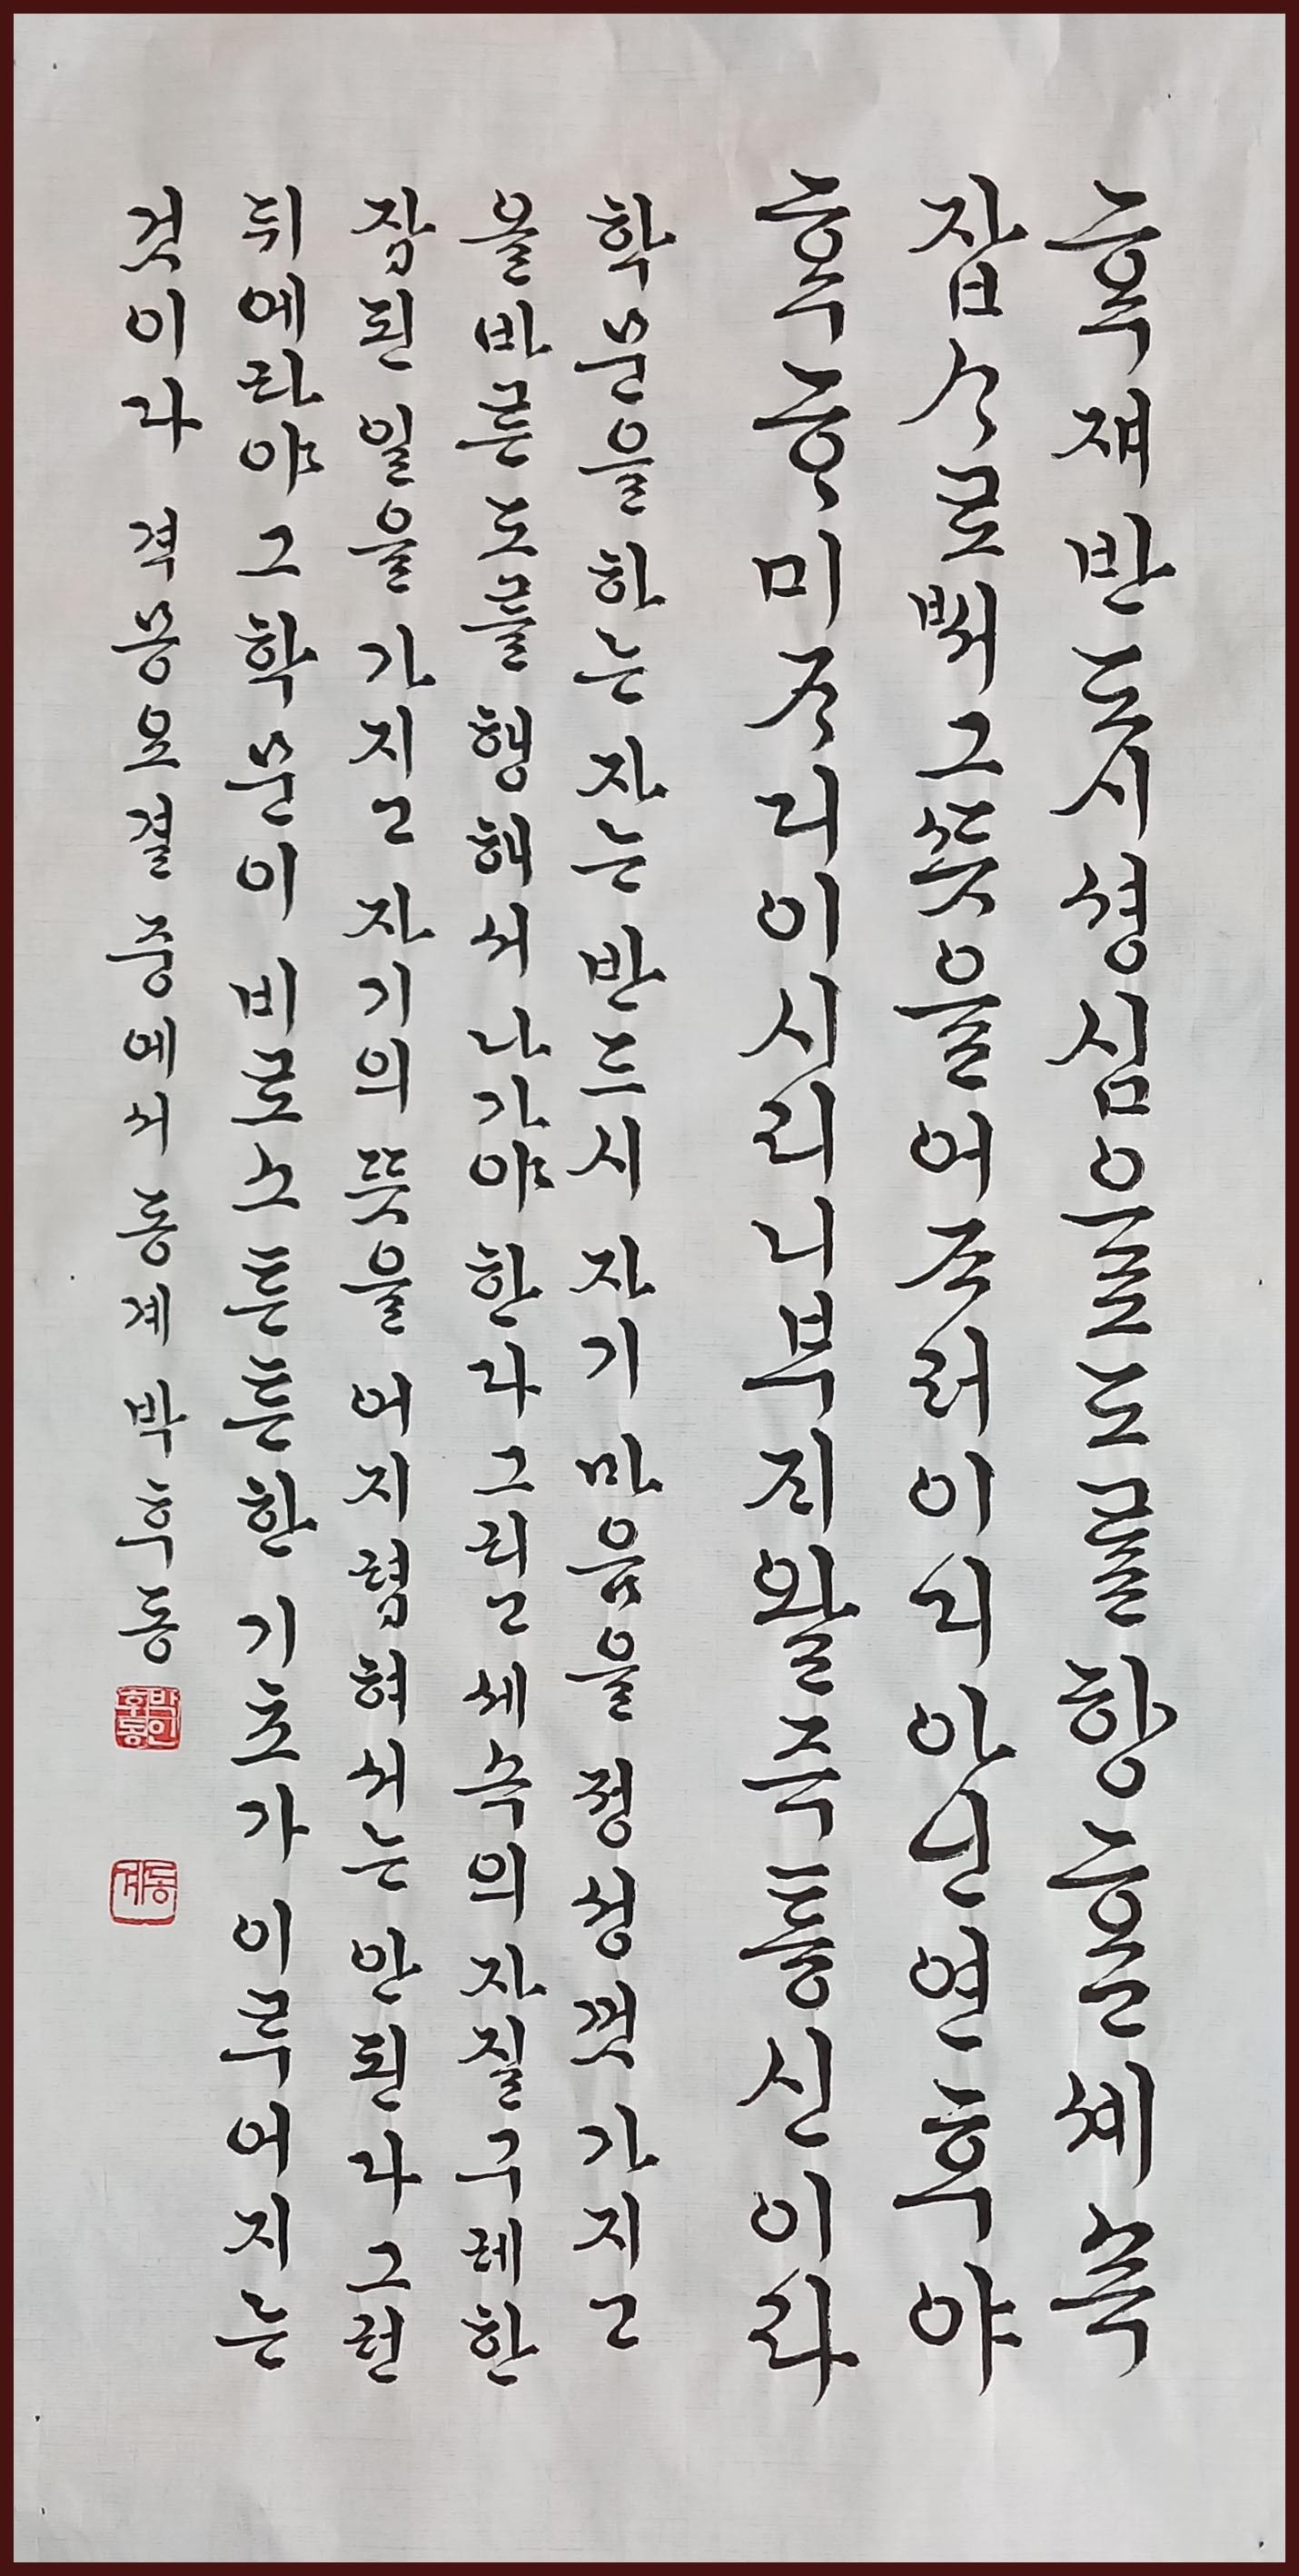 혹쟤반도시셩심으로도를향흐올셰속
잡스로ᄡᅥ그ᄯᅳᆺ을어즈러이디아닌연후야
혹흥미즈디이시리니부지왈쥭튱신이라
학문을 하는 자는 반드시 자기 마음을 정성껏 가지고
올바른 도를 행해서 나가야 한다 그리고 세속의 자질구레한
잡된 일을 가지고 자기의 뜻을 어지럽혀서는 안된다 그런
뒤에라야 그 학문이 비로소 튼튼한 기초가 이루어지는
것이다 격몽요결 중에서 동계 박후동
박인후동
동계